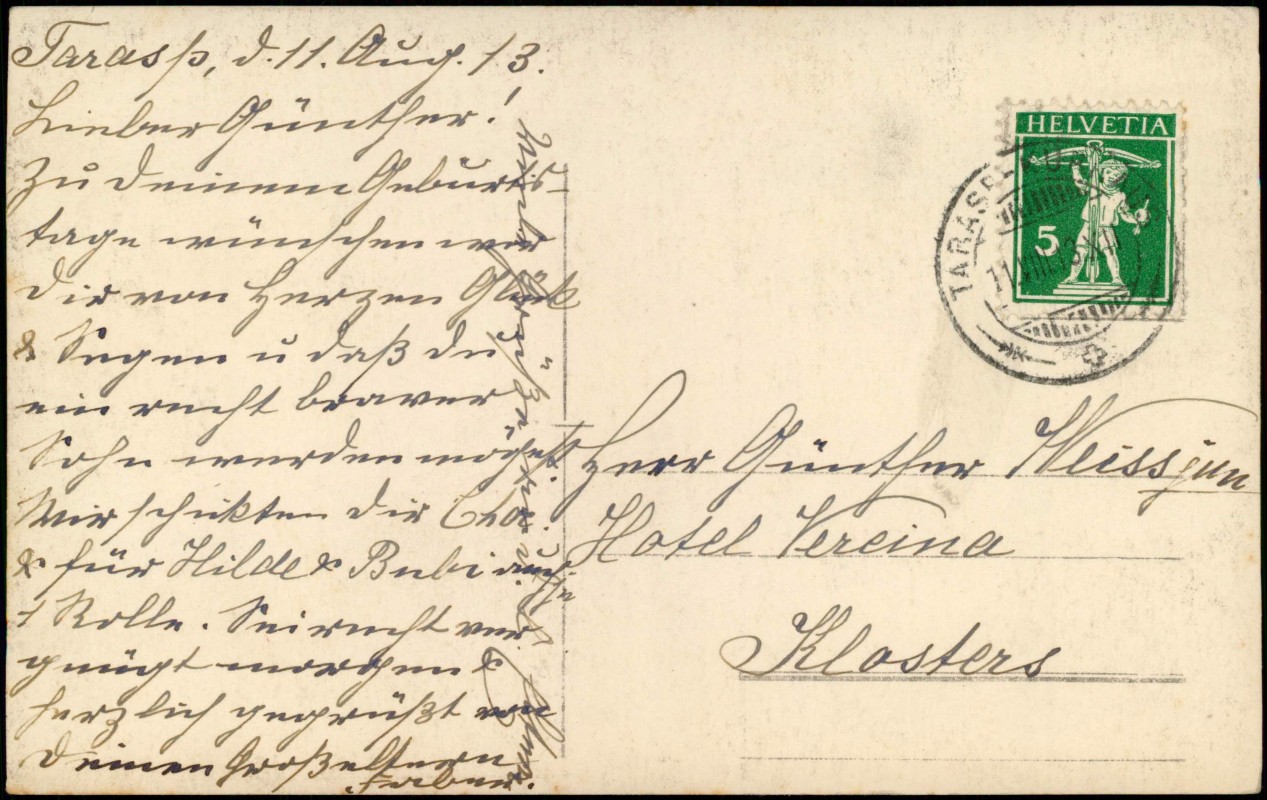 Tarasp, d. 11. Aug. 13.
Lieber Günther!
Zu deinem Geburts-
tage wünschen wir
dir von Herzen Glück
& Segen u daß du
ein recht braver
Sohn werden mögest.
Wir schickten dir Choc.
& für Hilde & Bubi auch je
1 Rolle. Sei recht ver-
gnügt morgen &
herzlich gegrüßt von
deinen Großeltern
Faber.
viele Grüße
HELVETIA
5
TARASP
11.VIII.13
Herr Günther Weiss jun
Hotel Vereina
Klosters